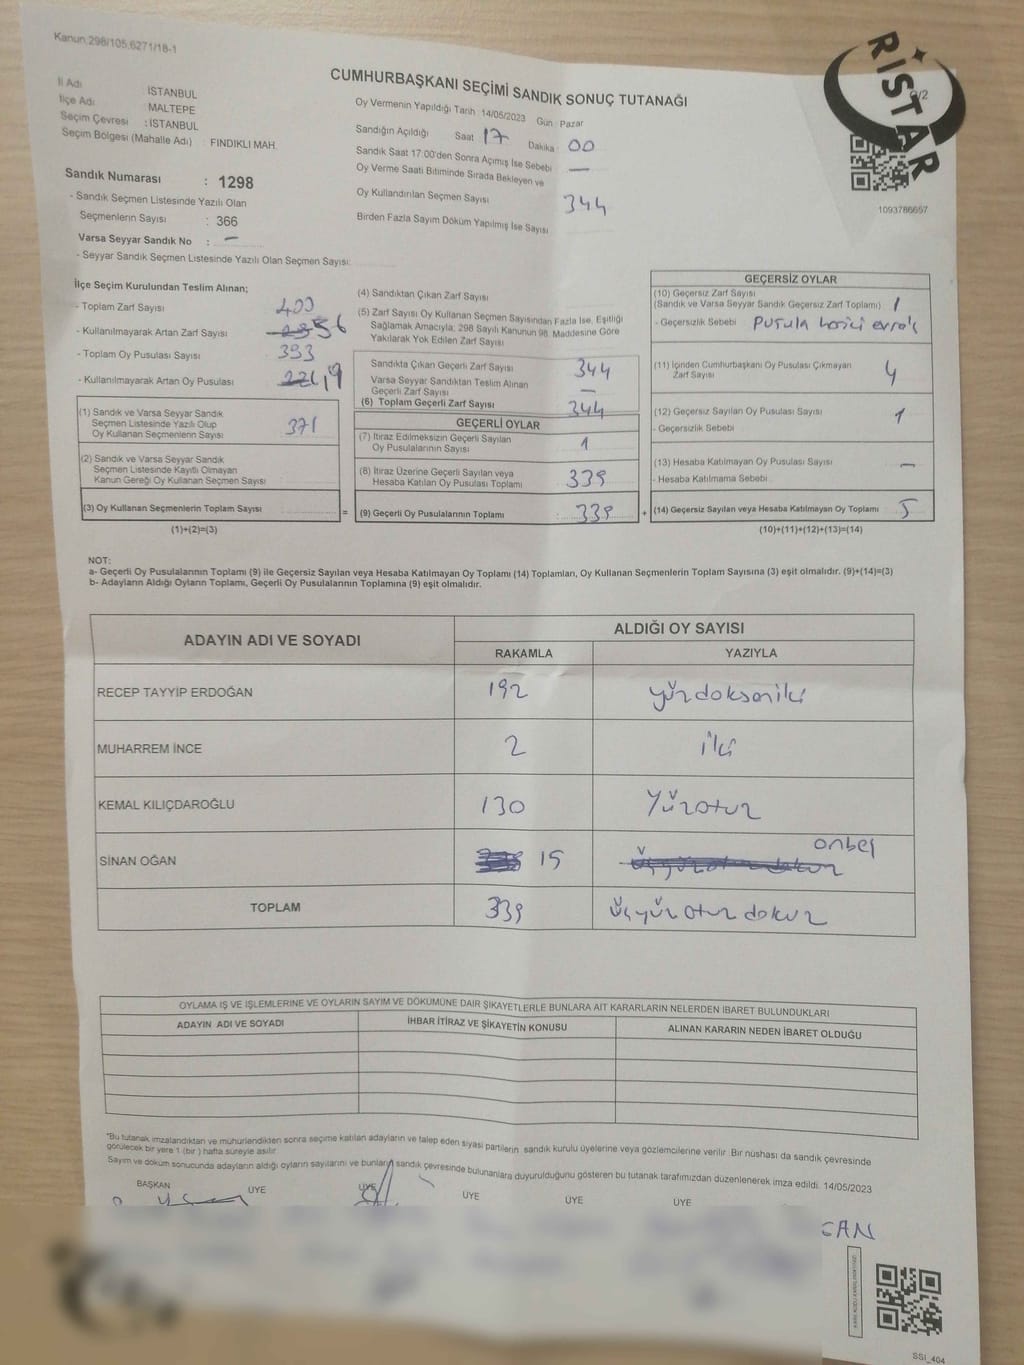 Kanun:298/105,6271/18-1
RISTAR
CUMHURBAŞKANI SEÇİMİ SANDIK SONUÇ TUTANAĞI
/2
İl Adı İSTANBUL
İlçe Adı MALTEPE
Seçim Çevresi : İSTANBUL
Seçim Bölgesi (Mahalle Adı) FINDIKLI MAH.
Oy Vermenin Yapıldığı Tarih 14/05/2023 Gün : Pazar
Sandığın Açıldığı Saat 17 Dakika 00
Sandık Saat 17:00'den Sonra Açımış İse Sebebi —
Oy Verme Saati Bitiminde Sırada Bekleyen ve
Oy Kullandırılan Seçmen Sayısı 344
Birden Fazla Sayım Döküm Yapılmış İse Sayısı
1093786657
Sandık Numarası : 1298
- Sandık Seçmen Listesinde Yazılı Olan
Seçmenlerin Sayısı : 366
Varsa Seyyar Sandık No : —
- Seyyar Sandık Seçmen Listesinde Yazılı Olan Seçmen Sayısı:
İlçe Seçim Kurulundan Teslim Alınan;
- Toplam Zarf Sayısı 400
- Kullanılmayarak Artan Zarf Sayısı 56
- Toplam Oy Pusulası Sayısı 393
- Kullanılmayarak Artan Oy Pusulası
(1) Sandık ve Varsa Seyyar Sandık
Seçmen Listesinde Yazılı Olup
Oy Kullanan Seçmenlerin Sayısı 371
(2) Sandık ve Varsa Seyyar Sandık
Seçmen Listesinde Kayıtlı Olmayan
Kanun Gereği Oy Kullanan Seçmen Sayısı :
(3) Oy Kullanan Seçmenlerin Toplam Sayısı
(1)+(2)=(3)
(4) Sandıktan Çıkan Zarf Sayısı
(5) Zarf Sayısı Oy Kullanan Seçmen Sayısından Fazla İse, Eşitliği
Sağlamak Amacıyla, 298 Sayılı Kanunun 98. Maddesine Göre
Yakılarak Yok Edilen Zarf Sayısı
Sandıkta Çıkan Geçerli Zarf Sayısı 344
Varsa Seyyar Sandıktan Teslim Alınan
Geçerli Zarf Sayısı —
(6) Toplam Geçerli Zarf Sayısı 344
GEÇERLİ OYLAR
(7) İtiraz Edilmeksizin Geçerli Sayılan
Oy Pusulalarının Sayısı 1
(8) İtiraz Üzerine Geçerli Sayılan veya
Hesaba Katılan Oy Pusulası Toplamı 339
= (9) Geçerli Oy Pusulalarının Toplamı : 339 +
GEÇERSİZ OYLAR
(10) Geçersiz Zarf Sayısı
(Sandık ve Varsa Seyyar Sandık Geçersiz Zarf Toplamı) 1
- Geçersizlik Sebebi Pusula harici evrak
(11) İçinden Cumhurbaşkanı Oy Pusulası Çıkmayan
Zarf Sayısı 4
(12) Geçersiz Sayılan Oy Pusulası Sayısı 1
- Geçersizlik Sebebi
(13) Hesaba Katılmayan Oy Pusulası Sayısı —
- Hesaba Katılmama Sebebi
(14) Geçersiz Sayılan veya Hesaba Katılmayan Oy Toplamı 5
(10)+(11)+(12)+(13)=(14)
NOT:
a- Geçerli Oy Pusulalarının Toplamı (9) ile Geçersiz Sayılan veya Hesaba Katılmayan Oy Toplamı (14) Toplamları, Oy Kullanan Seçmenlerin Toplam Sayısına (3) eşit olmalıdır. (9)+(14)=(3)
b- Adayların Aldığı Oyların Toplamı, Geçerli Oy Pusulalarının Toplamına (9) eşit olmalıdır.
ADAYIN ADI VE SOYADI ALDIĞI OY SAYISI
RAKAMLA YAZIYLA
RECEP TAYYİP ERDOĞAN 192 yüzdoksaniki
MUHARREM İNCE 2 iki
KEMAL KILIÇDAROĞLU 130 Yüzotuz
SİNAN OĞAN 15 onbeş
TOPLAM 339 üçyüzotuzdokuz
OYLAMA İŞ VE İŞLEMLERİNE VE OYLARIN SAYIM VE DÖKÜMÜNE DAİR ŞİKAYETLERLE BUNLARA AİT KARARLARIN NELERDEN İBARET BULUNDUKLARI
ADAYIN ADI VE SOYADI İHBAR İTİRAZ VE ŞİKAYETİN KONUSU ALINAN KARARIN NEDEN İBARET OLDUĞU
*Bu tutanak imzalandıktan ve mühürlendikten sonra seçime katılan adayların ve talep eden siyasi partilerin sandık kurulu üyelerine veya gözlemcilerine verilir. Bir nüshası da sandık çevresinde
görülecek bir yere 1 (bir) hafta süreyle asılır.
Sayım ve döküm sonucunda adayların aldığı oyların sayılarını ve bunların sandık çevresinde bulunanlara duyurulduğunu gösteren bu tutanak tarafımızdan düzenlenerek imza edildi. 14/05/2023
BAŞKAN ÜYE ÜYE ÜYE ÜYE ÜYE
CAN
SSI_404